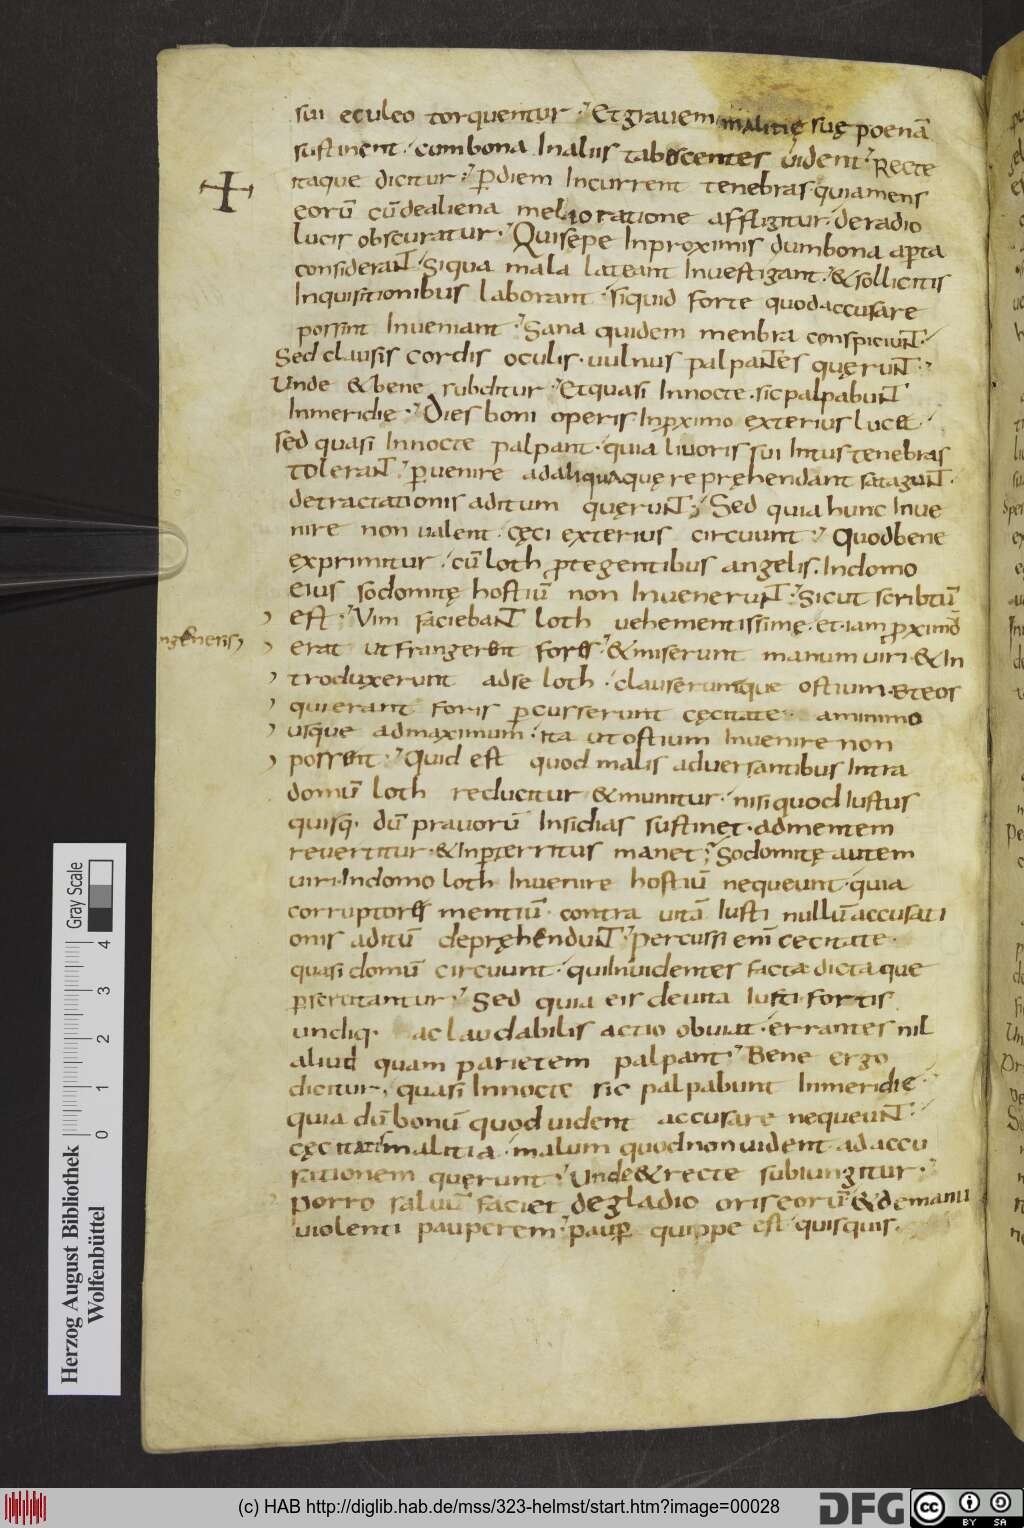 sui eculeo torquentur; Et grauem malitię suę poenā
sustinent. cumbona Inaliis tabescentes uident; Recte
itaque dicitur; ꝑdiem Incurrent tenebras quiamens
eorū cūdealiena melioratione affligitur. deradio
lucis obscuratur; Quisepe Inproximis dumbona aperta
considerant; Siqua mala lateant Inuestigant. &sollicitis
Inquisitionibus laborant. siquid forte quodaccusare
possint Inueniant; Sana quidem menbra conspiciunt.
Sed clausis cordis oculis. uulnus palpantes quęrunt;
Unde &bene subditur; Etquasi Innocte. sic palpabunt
Inmeridie; Dies boni operis. Inproximo exterius lucet.
sed quasi Innocte palpant. quia liuoris sui Intus tenebras
tolerant; ꝑuenire adaliquaquę repręhendant satagunt.
detractationis aditum quęrunt; Sed quia hunc Inue
nire non ualent. cęci exterius circuunt; Quodbene
exprimitur. cū loth protegentibus angelis. Indomo
eius sodomitę hostiū non Inuenerunt; Sicut scribtū
est; Vim faciebant loth uehementissimę. et iam proximū
ngenesis erat ut frangerent fores; &miserunt manum uiri. &In
troduxerunt adse loth. clauseruntque ostium. Eteos
quierant foris ꝑcusserunt cęcitate. aminimo
usque admaximum. ita ut ostium Inuenire non
possent; Quid est quod malis aduersantibus Intra
domū loth reducitur &munitur. nisi quod Iustus
quisq. dū prauorū Insidias sustinet. admentem
reuertitur. &Inperterritus manet; Sodomitę autem
uiri. Indomo loth Inuenire hostiū nequeunt. quia
corruptores mentiū. contra uitā Iusti nullū accusati
onis aditū depręhendunt; Percussi enī cecitate.
quasi domū circuunt. quiInuidentes facta dictaque
ꝑscrutantur; Sed quia eis deuita Iusti. fortis
undiq. ac laudabilis actio obuiat. errantes nil
aliud quam parietem palpant; Bene ergo
dicitur, quasi Innocte sic palpabunt Inmeridie
quia dū bonū quod uident accusare nequeunt.
cęcitati malitia. malum quodnonuident adaccu
sationem quęrunt; Unde&recte subiungitur;
Porro saluū faciet degladio oris eorū. &demanu
uiolenti pauperem; pauꝑ quippe est quisquis.
Herzog August Bibliothek
Wolfenbüttel
0 1 2 3 4
Gray Scale
(c) HAB http://diglib.hab.de/mss/323-helmst/start.htm?image=00028
DFG
cc BY SA